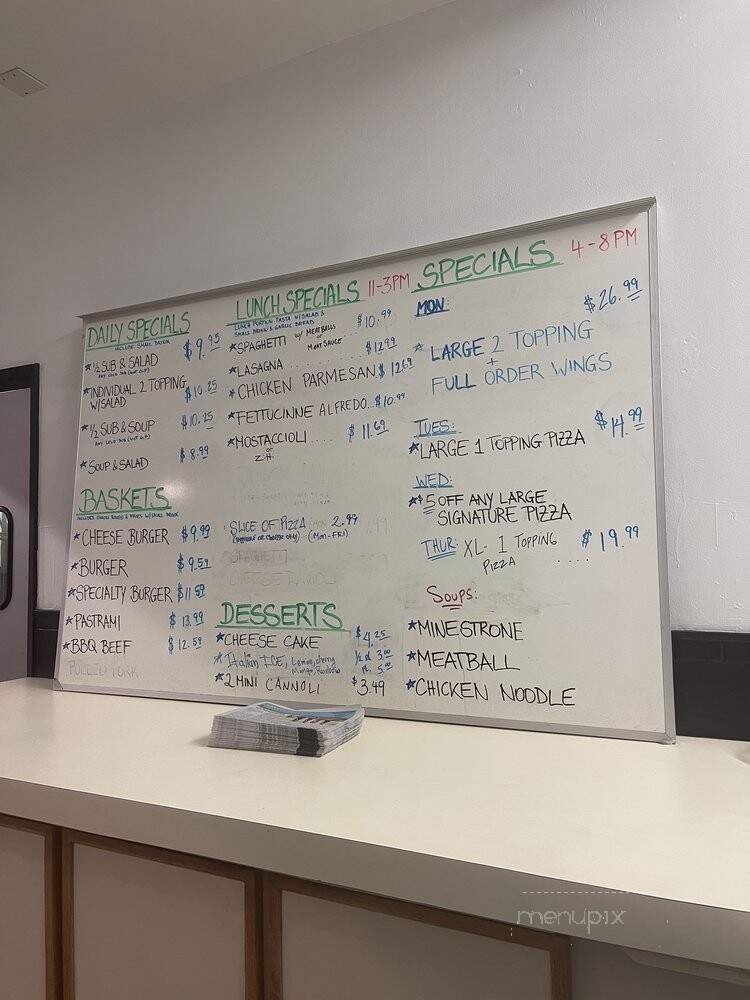 DAILY SPECIALS
INCLUDE SMALL DRINK
*½ SUB & SALAD $9.95
*INDIVIDUAL 2 TOPPING
W/SALAD $10.25
*½ SUB & SOUP $10.25
*SOUP & SALAD $8.99
BASKETS
*CHEESE BURGER $9.99
*BURGER $9.59
*SPECIALTY BURGER $11.59
*PASTRAMI $13.99
*BBQ BEEF $12.59
PULLED PORK
LUNCH SPECIALS 11-3PM
LUNCH PORTION PASTA W/SALAD &
SMALL DRINK & GARLIC BREAD
*SPAGHETTI W/ MEATBALLS $10.99
or
MEAT SAUCE
*LASAGNA ........ $12.99
*CHICKEN PARMESAN $12.69
*FETTUCINNE ALFREDO... $10.99
*MOSTACCIOLI ..... $11.69
or
Ziti
SLICE OF PIZZA 2.99
(PEPPERONI OR CHEESE ONLY) (MON-FRI)
DESSERTS
*CHEESE CAKE $4.25
*Italian ICE, Lemon, cherry ½ pt 3.00
Mango, Rainbow pt 5.00
*2 MINI CANNOLI $3.49
SPECIALS 4-8PM
MON: $26.99
*LARGE 2 TOPPING
+
FULL ORDER WINGS
TUES: $14.99
*LARGE 1 TOPPING PIZZA
WED:
*$5 OFF ANY LARGE
SIGNATURE PIZZA
THUR: XL- 1 TOPPING
PIZZA .... $19.99
SOUPS:
*MINESTRONE
*MEATBALL
*CHICKEN NOODLE
menupix